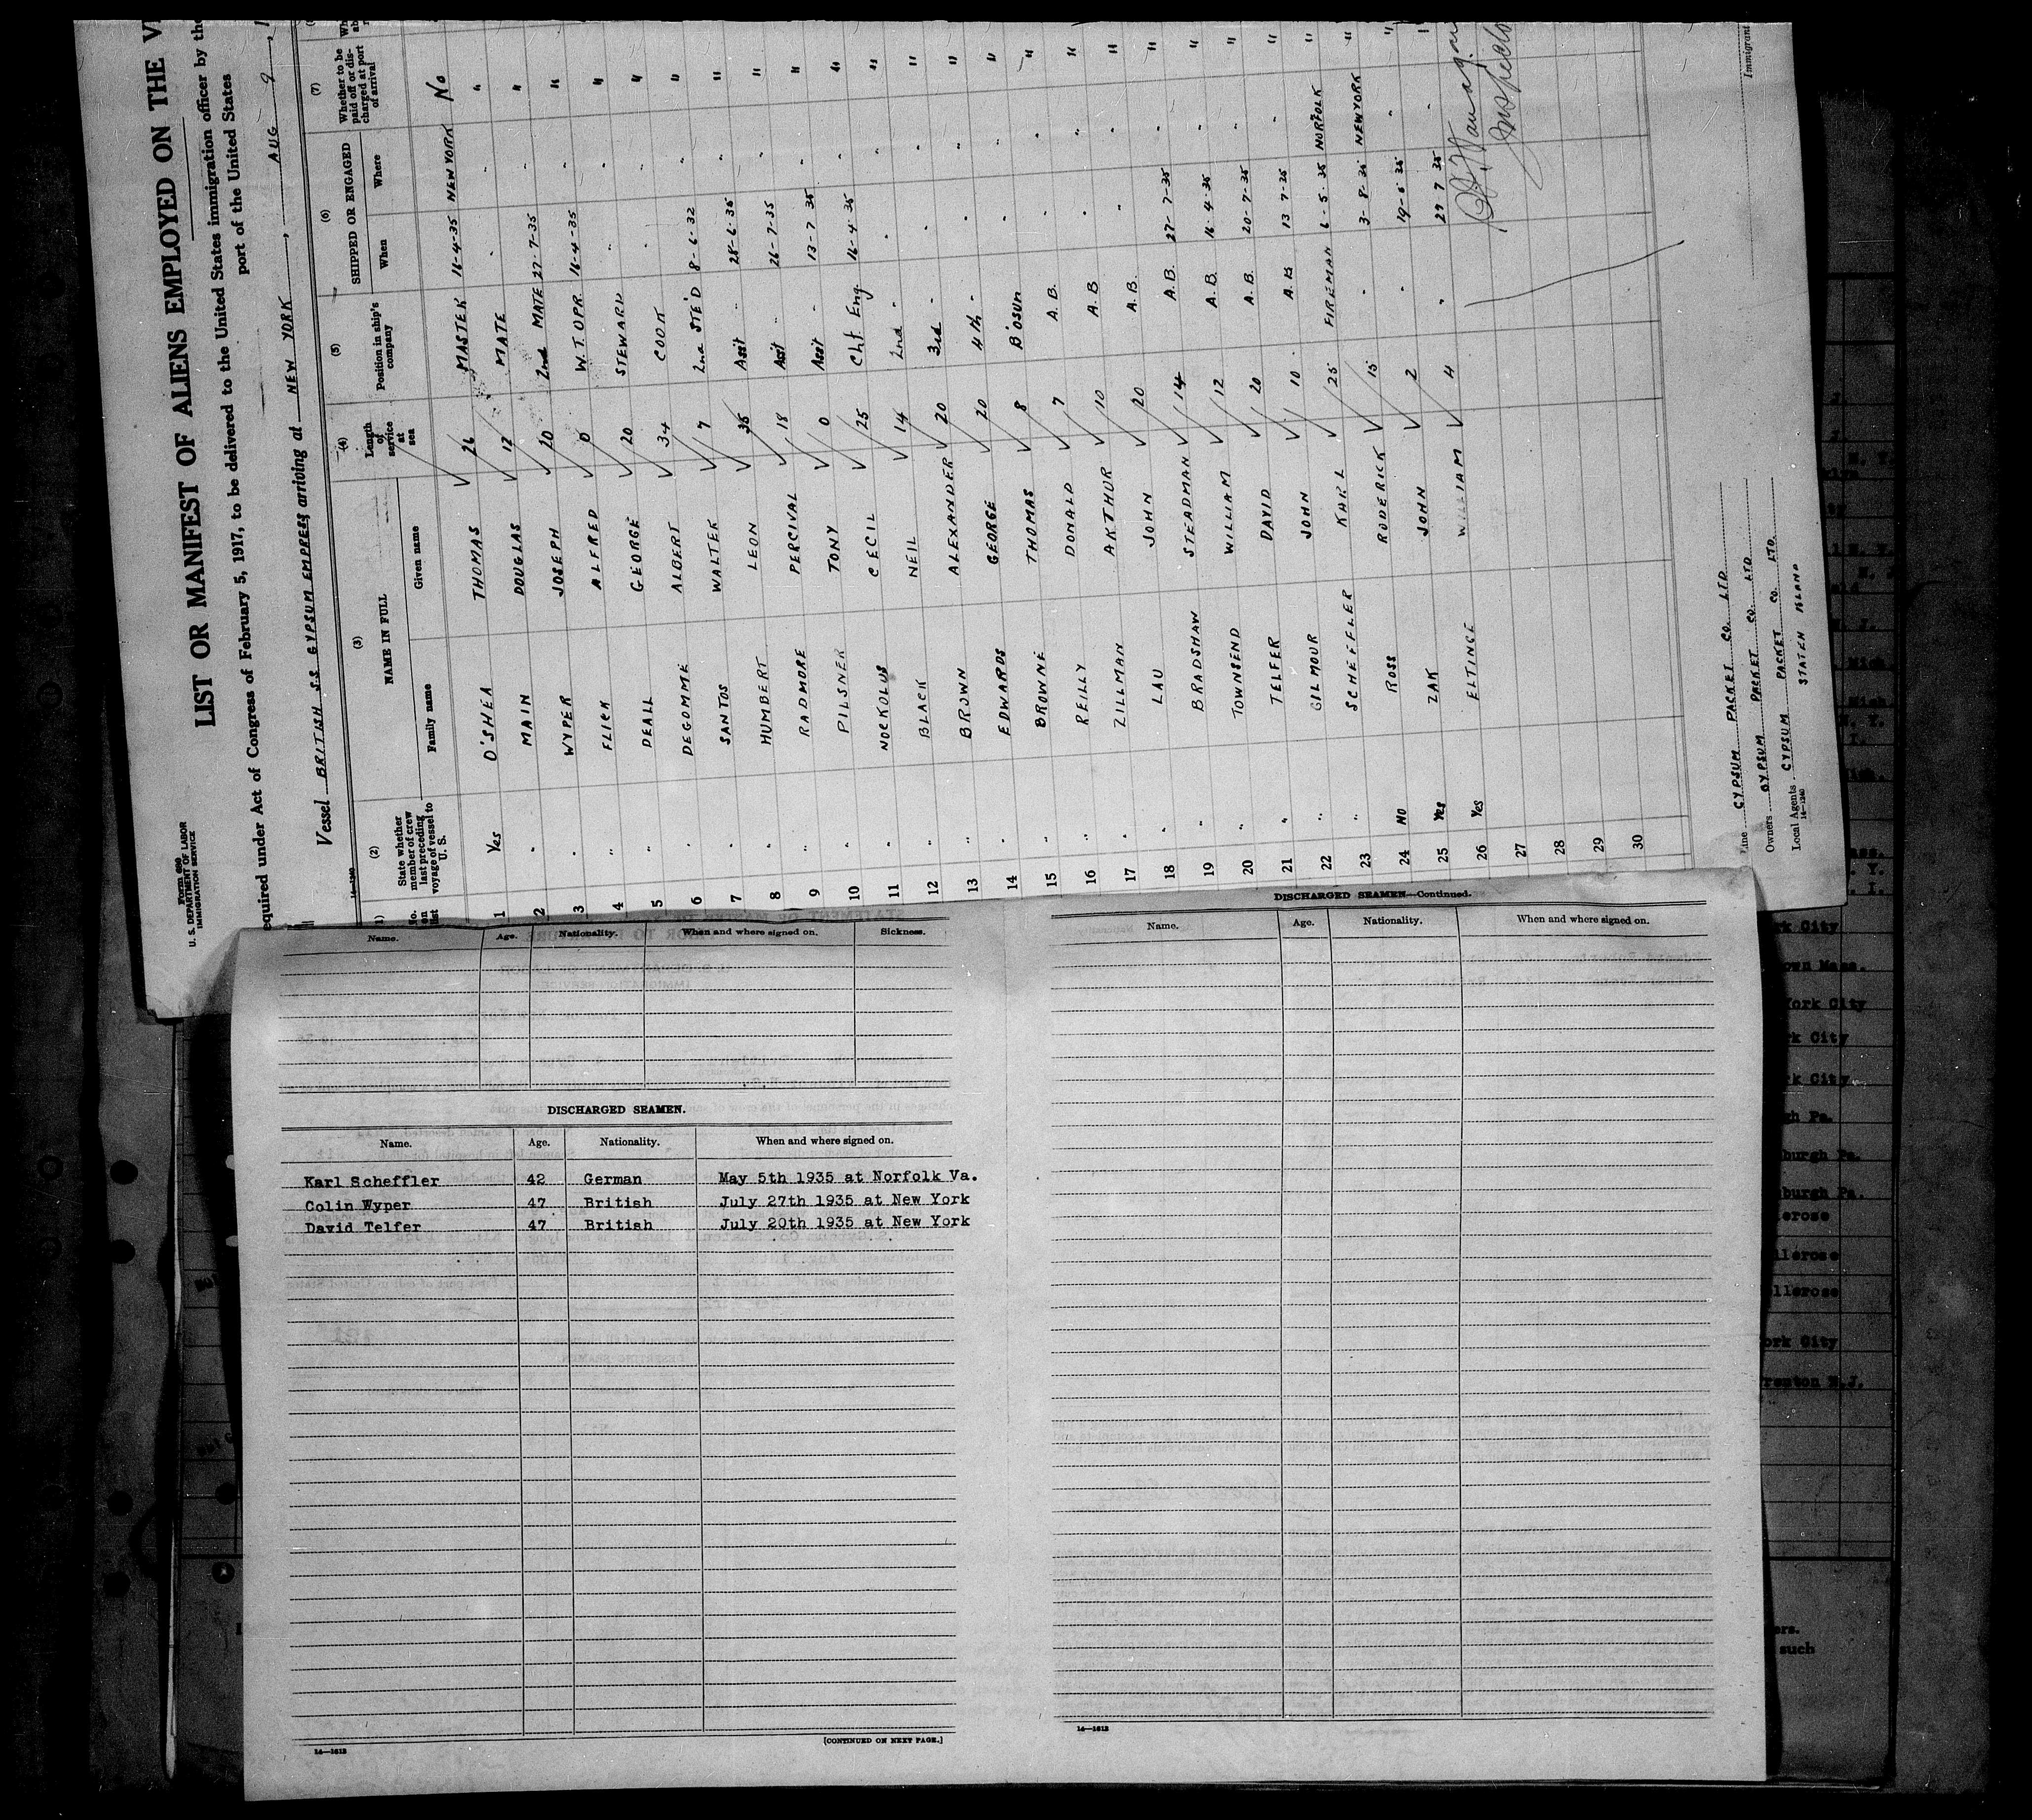 Form 680
U. S. DEPARTMENT OF LABOR
IMMIGRATION SERVICE
LIST OR MANIFEST OF ALIENS EMPLOYED ON THE
equired under Act of Congress of February 5, 1917, to be delivered to the United States immigration officer by the
port of the United States
Vessel BRITISH S.S GYPSUM EMPRESS, arriving at NEW YORK, AUG 9, 1
14—1240
(1) (2) (3) (4) (5) (6) (7)
No. on list State whether member of crew last preceding voyage of vessel to U. S. NAME IN FULL Length of service at sea Position in ship's company SHIPPED OR ENGAGED Whether to be paid off or discharged at port of arrival
Family name Given name When Where
1 Yes O'SHEA THOMAS 26 MASTER 16-4-35 NEW YORK No
2 " MAIN DOUGLAS 12 MATE " "
3 " WYPER JOSEPH 20 2nd MATE 27-7-35 " "
4 " FLICK ALFRED 0 W.T. OPR 16-4-35 " "
5 " DEALL GEORGE 20 STEWARD " " "
6 " DEGOMME ALBERT 34 COOK " " "
7 " SANTOS WALTER 7 2nd STE'D 8-6-32 " "
8 " HUMBERT LEON 35 Asst " 28-6-35 " "
9 " RADMORE PERCIVAL 18 Asst " 26-7-35 " "
10 " PILSNER TONY 0 Asst " 13-7-35 " "
11 " NOCKOLUS CECIL 25 Chf Eng 16-4-35 " "
12 " BLACK NEIL 14 2nd " " " "
13 " BROWN ALEXANDER 20 3rd " " " "
14 " EDWARDS GEORGE 20 4th " " " "
15 " BROWNE THOMAS 8 B'OSUN " " "
16 " REILLY DONALD 7 A.B. " " "
17 " ZILLMAN ARTHUR 10 A.B " " "
18 " LAU JOHN 20 A.B. " " "
19 " BRADSHAW STEADMAN 14 A.B. 27-7-35 " "
20 " TOWNSEND WILLIAM 12 A.B. 16-4-35 " "
21 " TELFER DAVID 20 A.B. 20-7-35 " "
22 " GILMOUR JOHN 10 A.B 13 7-35 " "
23 " SCHEFFLER KARL 25 FIREMAN 6-5-35 NORFOLK "
24 NO ROSS RODERICK 15 " 3-8-35 NEW YORK "
25 Yes ZAK JOHN 2 " 19-6 35 " "
26 Yes ELTINGE WILLIAM 4 " 29 7 35 " "
27
28
29
30
Inspector
Immigrant
Line GYPSUM PACKET CO. LTD
Owners GYPSUM PACKET CO. LTD
Local Agents GYPSUM PACKET CO. LTD.
14—1240
STATEN ISLAND
Name. Age. Nationality. When and where signed on. Sickness.
DISCHARGED SEAMEN.
Name. Age. Nationality. When and where signed on.
Karl Scheffler 42 German May 5th 1935 at Norfolk Va.
Colin Wyper 47 British July 27th 1935 at New York
David Telfer 47 British July 20th 1935 at New York
14—1613
[CONTINUED ON NEXT PAGE.]
DISCHARGED SEAMEN—Continued.
Name. Age. Nationality. When and where signed on.
14—1613
rk City
own Mass.
York City
rk City
rk City
gh Pa.
burgh Pa.
burgh Pa.
lerose
llerose
llerose
ork City
Trenton N.J.
ers.
such